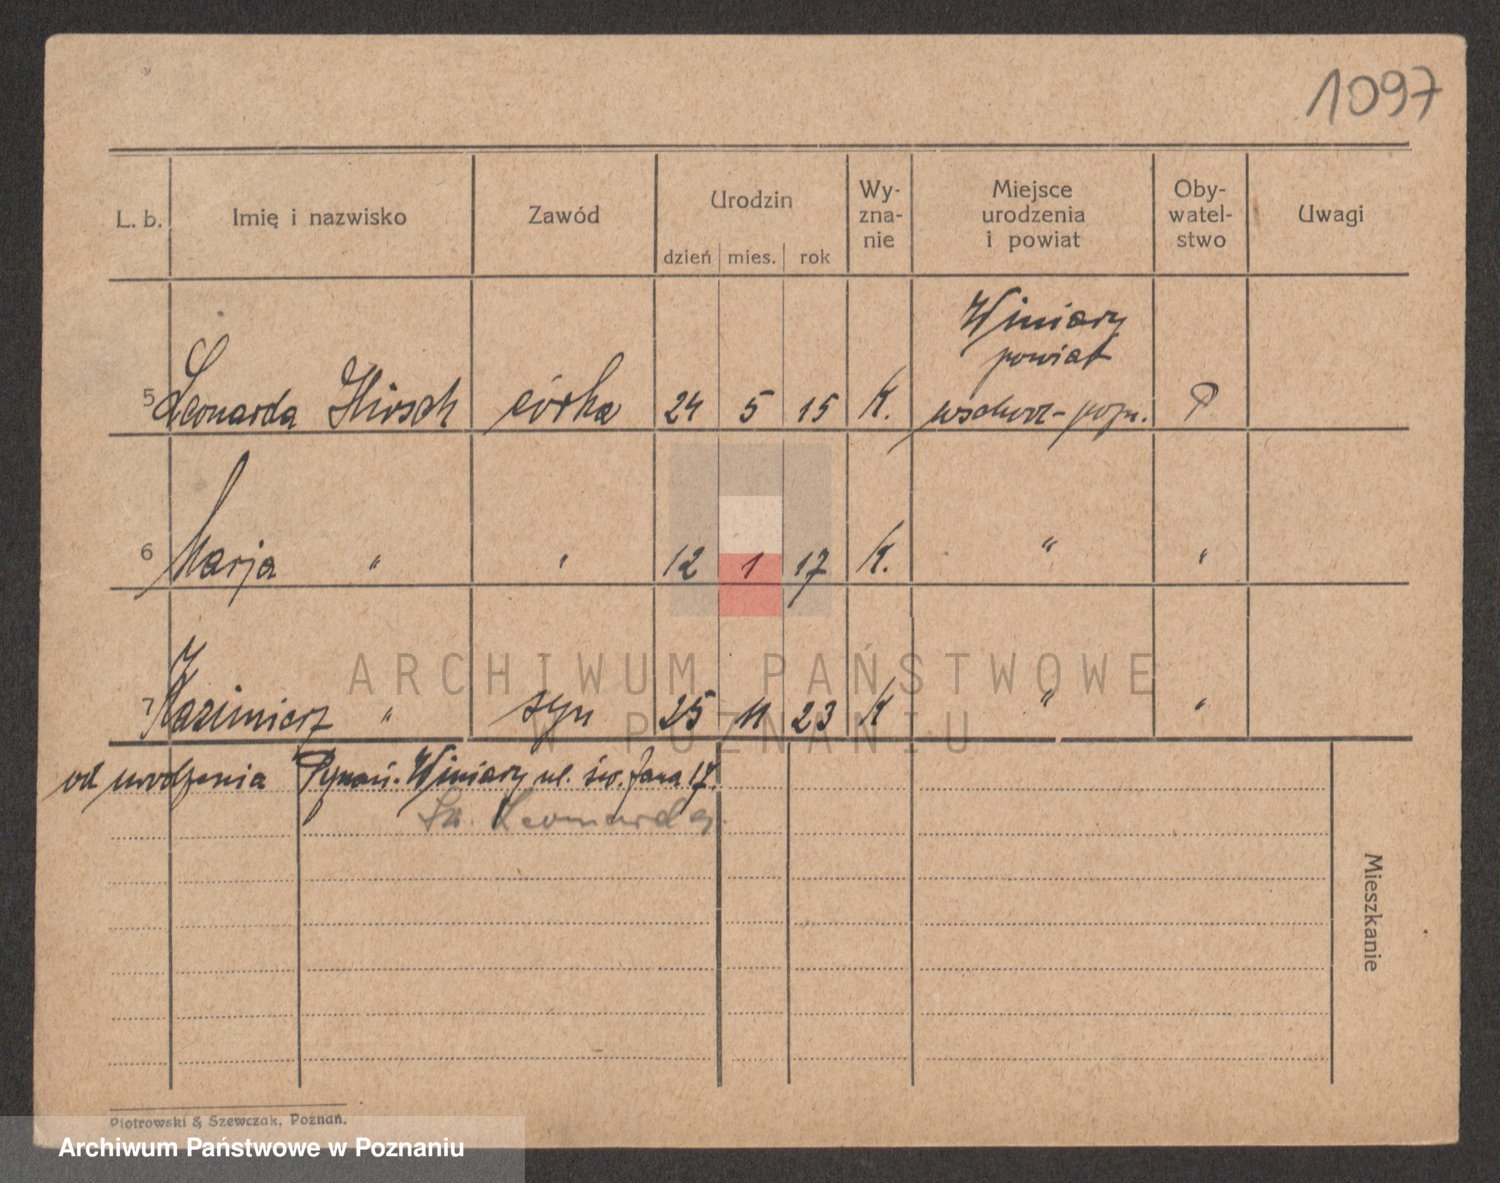 1097
L. b. Imię i nazwisko Zawód Urodzin Wy- Miejsce Oby- Uwagi
zna- urodzenia watel-
nie i powiat stwo
dzień mies. rok
Winiary
powiat
5 Leonarda Hirsch córka 24 5 15 K. wschod-pozn. P
6 Marja " " 12 1 17 K. " "
7 Kazimierz " syn 25 11 23 K " "
od urodzenia Poznań. Winiary ul. św. Jana 17.
Św. Leonarda
Mieszkanie
ARCHIWUM PAŃSTWOWE
W POZNANIU
Piotrowski & Szewczak, Poznań.
Archiwum Państwowe w Poznaniu